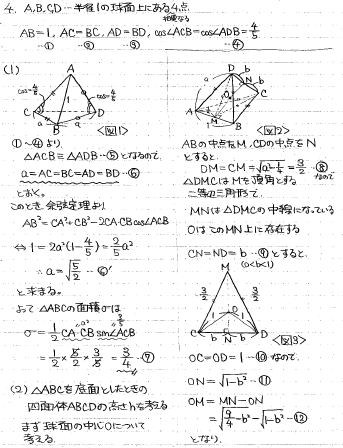 4. A,B,C,D…半径1の球面上にある4点
相異なる
AB=1, AC=BC, AD=BD, cos∠ACB=cos∠ADB=4/5
…① …② …③ …④
(1)
A
cos=4/5
cos=4/5
C
D
B
a
a
1
<図1>
①~④より
△ACB≡△ADB…⑤となるので
a=AC=BC=AD=BD…⑥
とおく。
このとき余弦定理より
AB²=CA²+CB²-2CA・CBcos∠ACB
⇔ 1=2a²(1-4/5)=2/5a²
∴ a=√5/2 …⑥'
と求まる。
よって△ABCの面積σは
σ=1/2 CA・CB sin∠ACB
=1/2×5/2×3/5=3/4…⑦
(2) △ABCを底面としたときの
四面体ABCDの高さhを考える
まず球面の中心Oについて
考える
D
b
N
b
C
a
A
M
B
<図2>
ABの中点をM, CDの中点をN
とすると
DM=CM=√a²-1/4=3/2…⑧
なので
△DMCはMを頂角とする
二等辺三角形で
MNは△DMCの中線になっている
OはこのMN上に存在する
CN=ND=b…⑨とすると
(0<b<1)
M
3/2
3/2
O
1
1
C
b
N
b
D
<図3>
OC=OD=1…⑩なので
ON=√1-b²…⑪
OM=MN-ON
=√9/4-b²-√1-b²…⑫
となり、